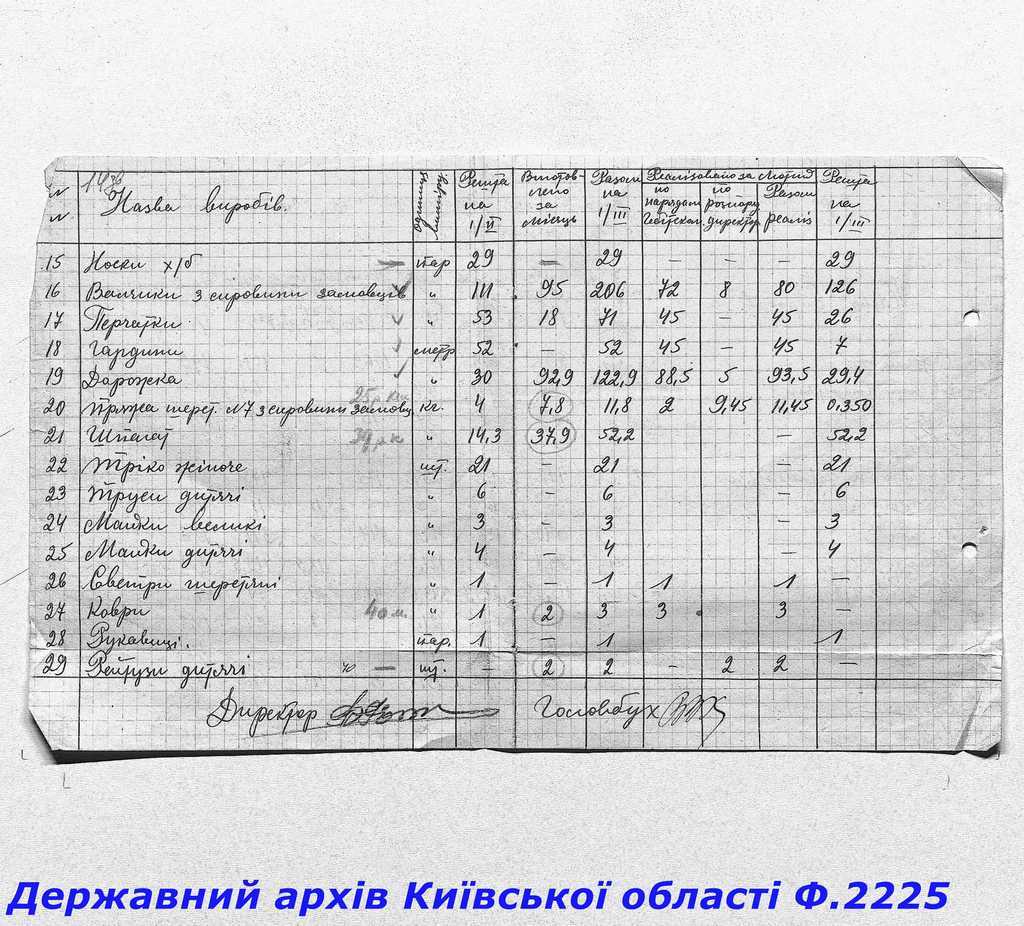 № № Назва виробів. одиниця виміру Решта на 1/II Виготовлено за місяць Разом на 1/III Реалізовано за лютий по нарядам по розпоряд. директ. Разом реаліз Решта на 1/III
15 Носки х/б — пар 29 — 29 — — — 29
16 Валчики з сировини замовців " 111 95 206 72 8 80 126
17 Перчатки " 53 18 71 45 — 45 26
18 Гардини метр 52 — 52 45 — 45 7
19 Дорожка " 30 92,9 122,9 88,5 5 93,5 29,4
20 Пряжа шерст. №7 з сировини замовц. кг. 4 7,8 11,8 2 9,45 11,45 0,350
21 Шпагат " 14,3 37,9 52,2 — 52,2
22 Тріко жіноче шт. 21 — 21 — 21
23 Труси дитячі " 6 — 6 — 6
24 Майки великі " 3 — 3 — 3
25 Майки дитячі " 4 — 4 — 4
26 Светри шерстяні " 1 — 1 1 1 —
27 Коври 40 м. " 1 2 3 3 3 —
28 Рукавиці. пар. 1 — 1 1
29 Рейтузи дитячі — шт. — 2 2 — 2 2 —
Директор Головбух
Державний архів Київської області Ф.2225